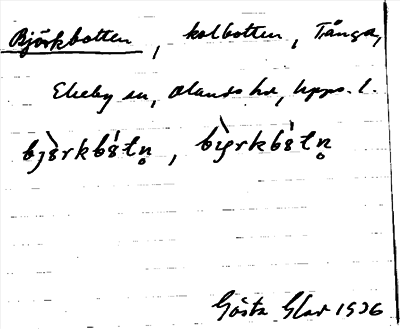 Björkbotten, kolbotten, Tånga,
Ekeby sn, Olands hd, Upps. l.
bjö̀rkbót̄n̥, bìỵrkbót̄n̥
Gösta Glad 1936